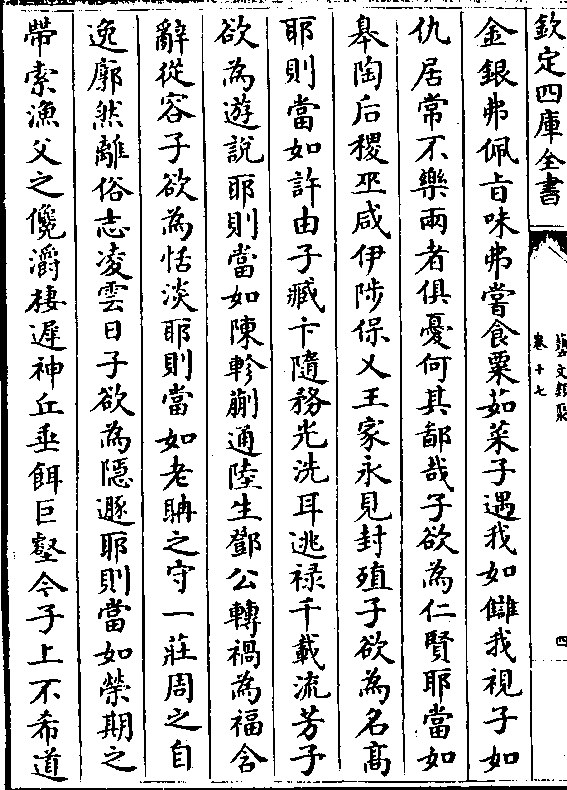 欽定四庫全書
藝文類聚
卷十七
四
金銀弗佩旨味弗嘗食粟茹菜子遇我如讎我視子如
仇居常不樂兩者俱憂何其鄙哉子欲為仁賢耶當如
皋陶后稷巫咸伊陟保乂王家永見封殖子欲為名髙
耶則當如許由子臧卞隨務光洗耳逃禄千載流芳子
欲為遊說耶則當如陳軫蒯通陸生鄧公轉禍為福含
辭從容子欲為恬淡耶則當如老聃之守一莊周之自
逸廓然離俗志凌雲日子欲為隱遯耶則當如榮期之
帶索漁父之儳㶚棲遲神丘垂餌巨壑今子上不希道